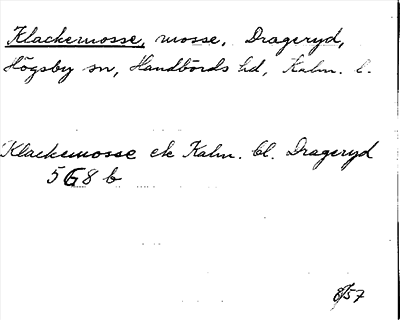 Klackemosse, mosse, Drageryd,
Högsby sn, Handbörds hd, Kalm. l.
Klackemosse ek Kalm. bl. Drageryd
5G8b
8/57